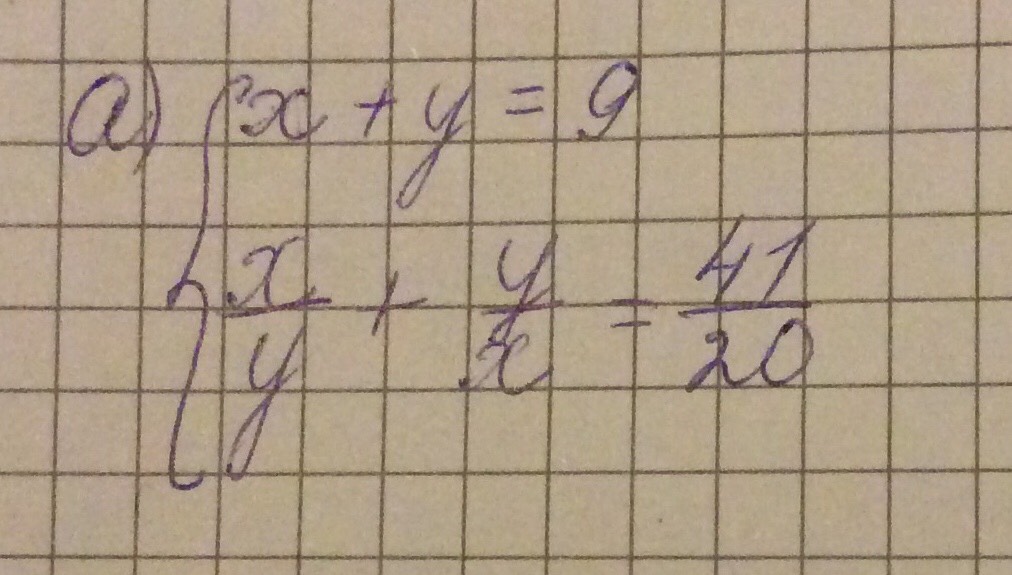 а) { x + y = 9
x/y + y/x = 41/20